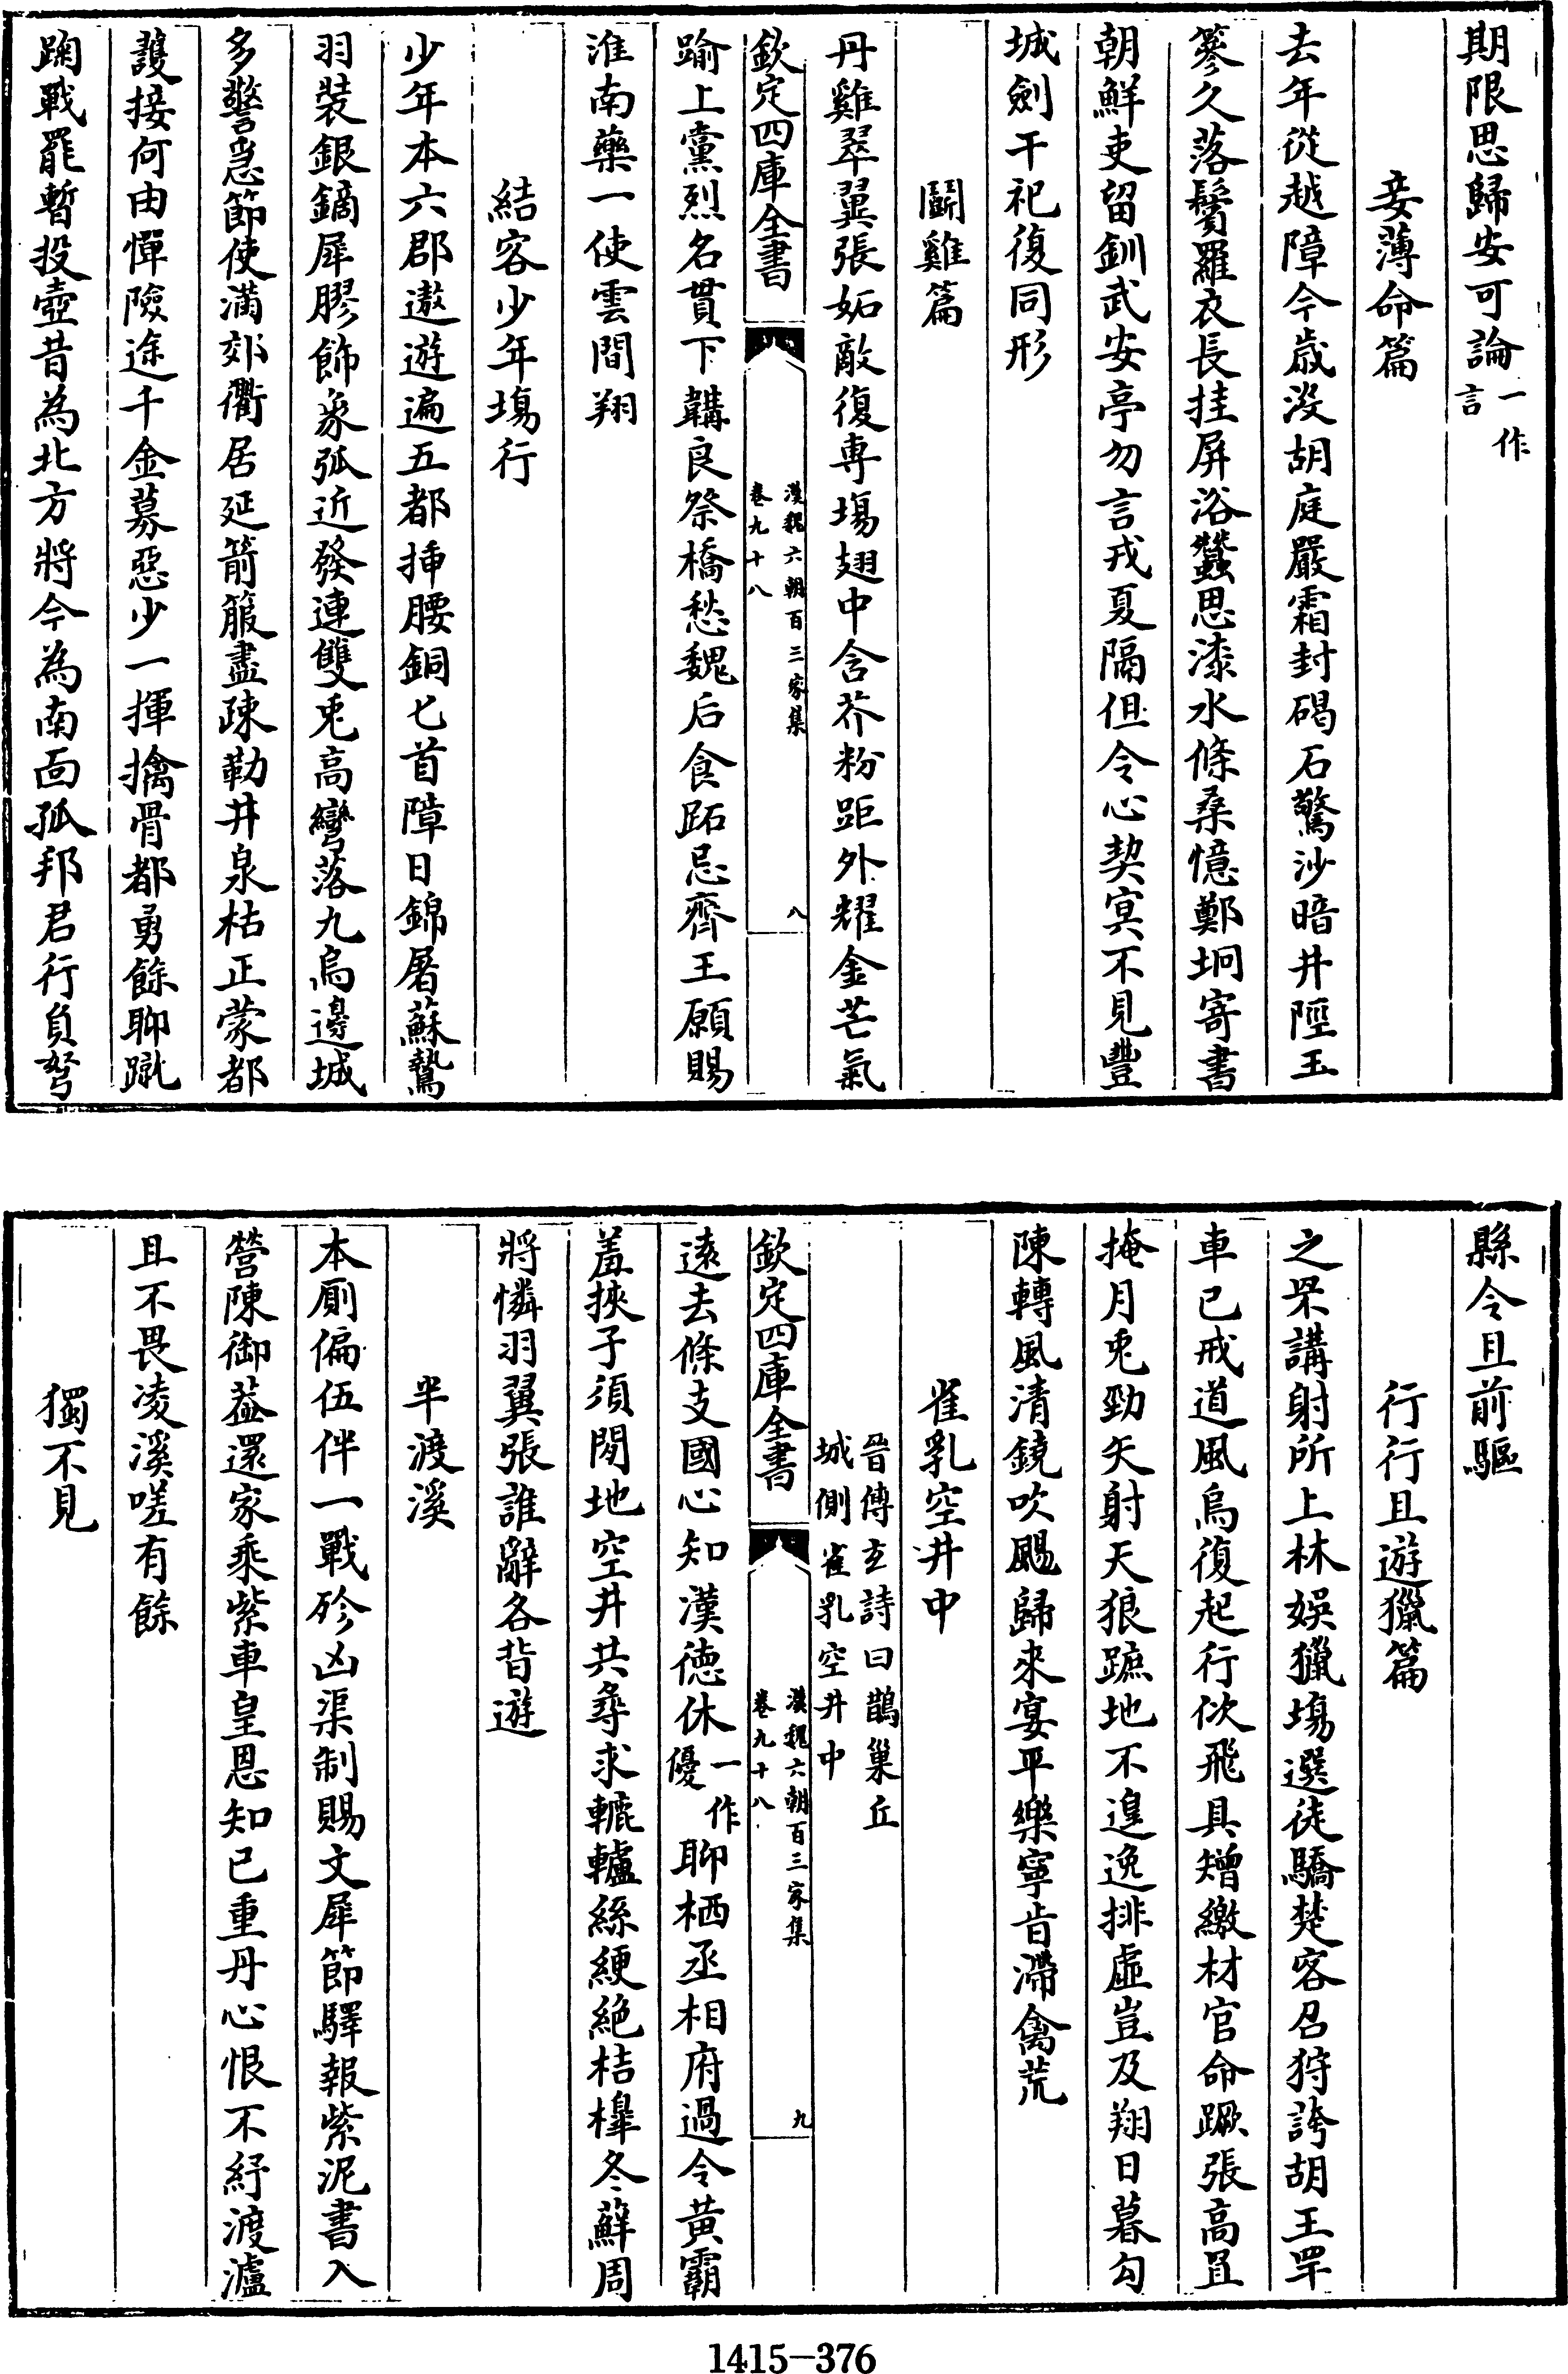 期限思歸安可論一作言
妾薄命篇
去年從越障今歲沒胡庭嚴霜封碣石驚沙暗井陘玉
簪久落鬢羅衣長挂屏浴蠶思漆水條桑憶鄭坰寄書
朝鮮吏留釧武安亭勿言戎夏隔但令心契冥不見豐
城劍干祀復同形
鬭雞篇
丹雞翠翼張妬敵復専塲翅中含芥粉距外耀金芒氣
欽定四庫全書
漢魏六朝百三家集
卷九十八
八
踰上黨烈名貫下韝良祭橋愁魏后食跖忌齊王願賜
淮南藥一使雲間翔
結客少年塲行
少年本六郡遨遊遍五都揷腰銅匕首障日錦屠蘇鷙
羽裝銀鏑犀膠飾象弧近發連雙兎高彎落九烏邊城
多警急節使滿郊衢居延箭箙盡疎勒井泉枯正蒙都
護接何由憚險途千金募惡少一揮擒骨都勇餘聊蹴
踘戰罷暫投壺昔為北方將今為南面孤邦君行負弩
縣令且前驅
行行且遊獵篇
之罘講射所上林娛獵塲選徒驕楚客召狩誇胡王罕
車已戒道風烏復起行佽飛具矰繳材官命蹶張高罝
掩月兎勁矢射天狼蹠地不遑逸排虛豈及翔日暮勾
陳轉風清鐃吹颺歸來宴平樂寧肯滯禽荒
雀乳空井中
晉傅玄詩曰鵲巢丘
城側雀乳空井中
欽定四庫全書
漢魏六朝百三家集
卷九十八
九
遠去條支國心知漢德休一作優聊栖丞相府過令黃霸
羞挾子須閒地空井共尋求轆轤絲綆絶桔槔冬蘚周
將憐羽翼張誰辭各背遊
半渡溪
本厠偏伍伴一戰殄凶渠制賜文犀節驛報紫泥書入
營陳御葢還家乘紫車皇恩知已重丹心恨不紓渡瀘
且不畏凌溪嗟有餘
獨不見
1415-376